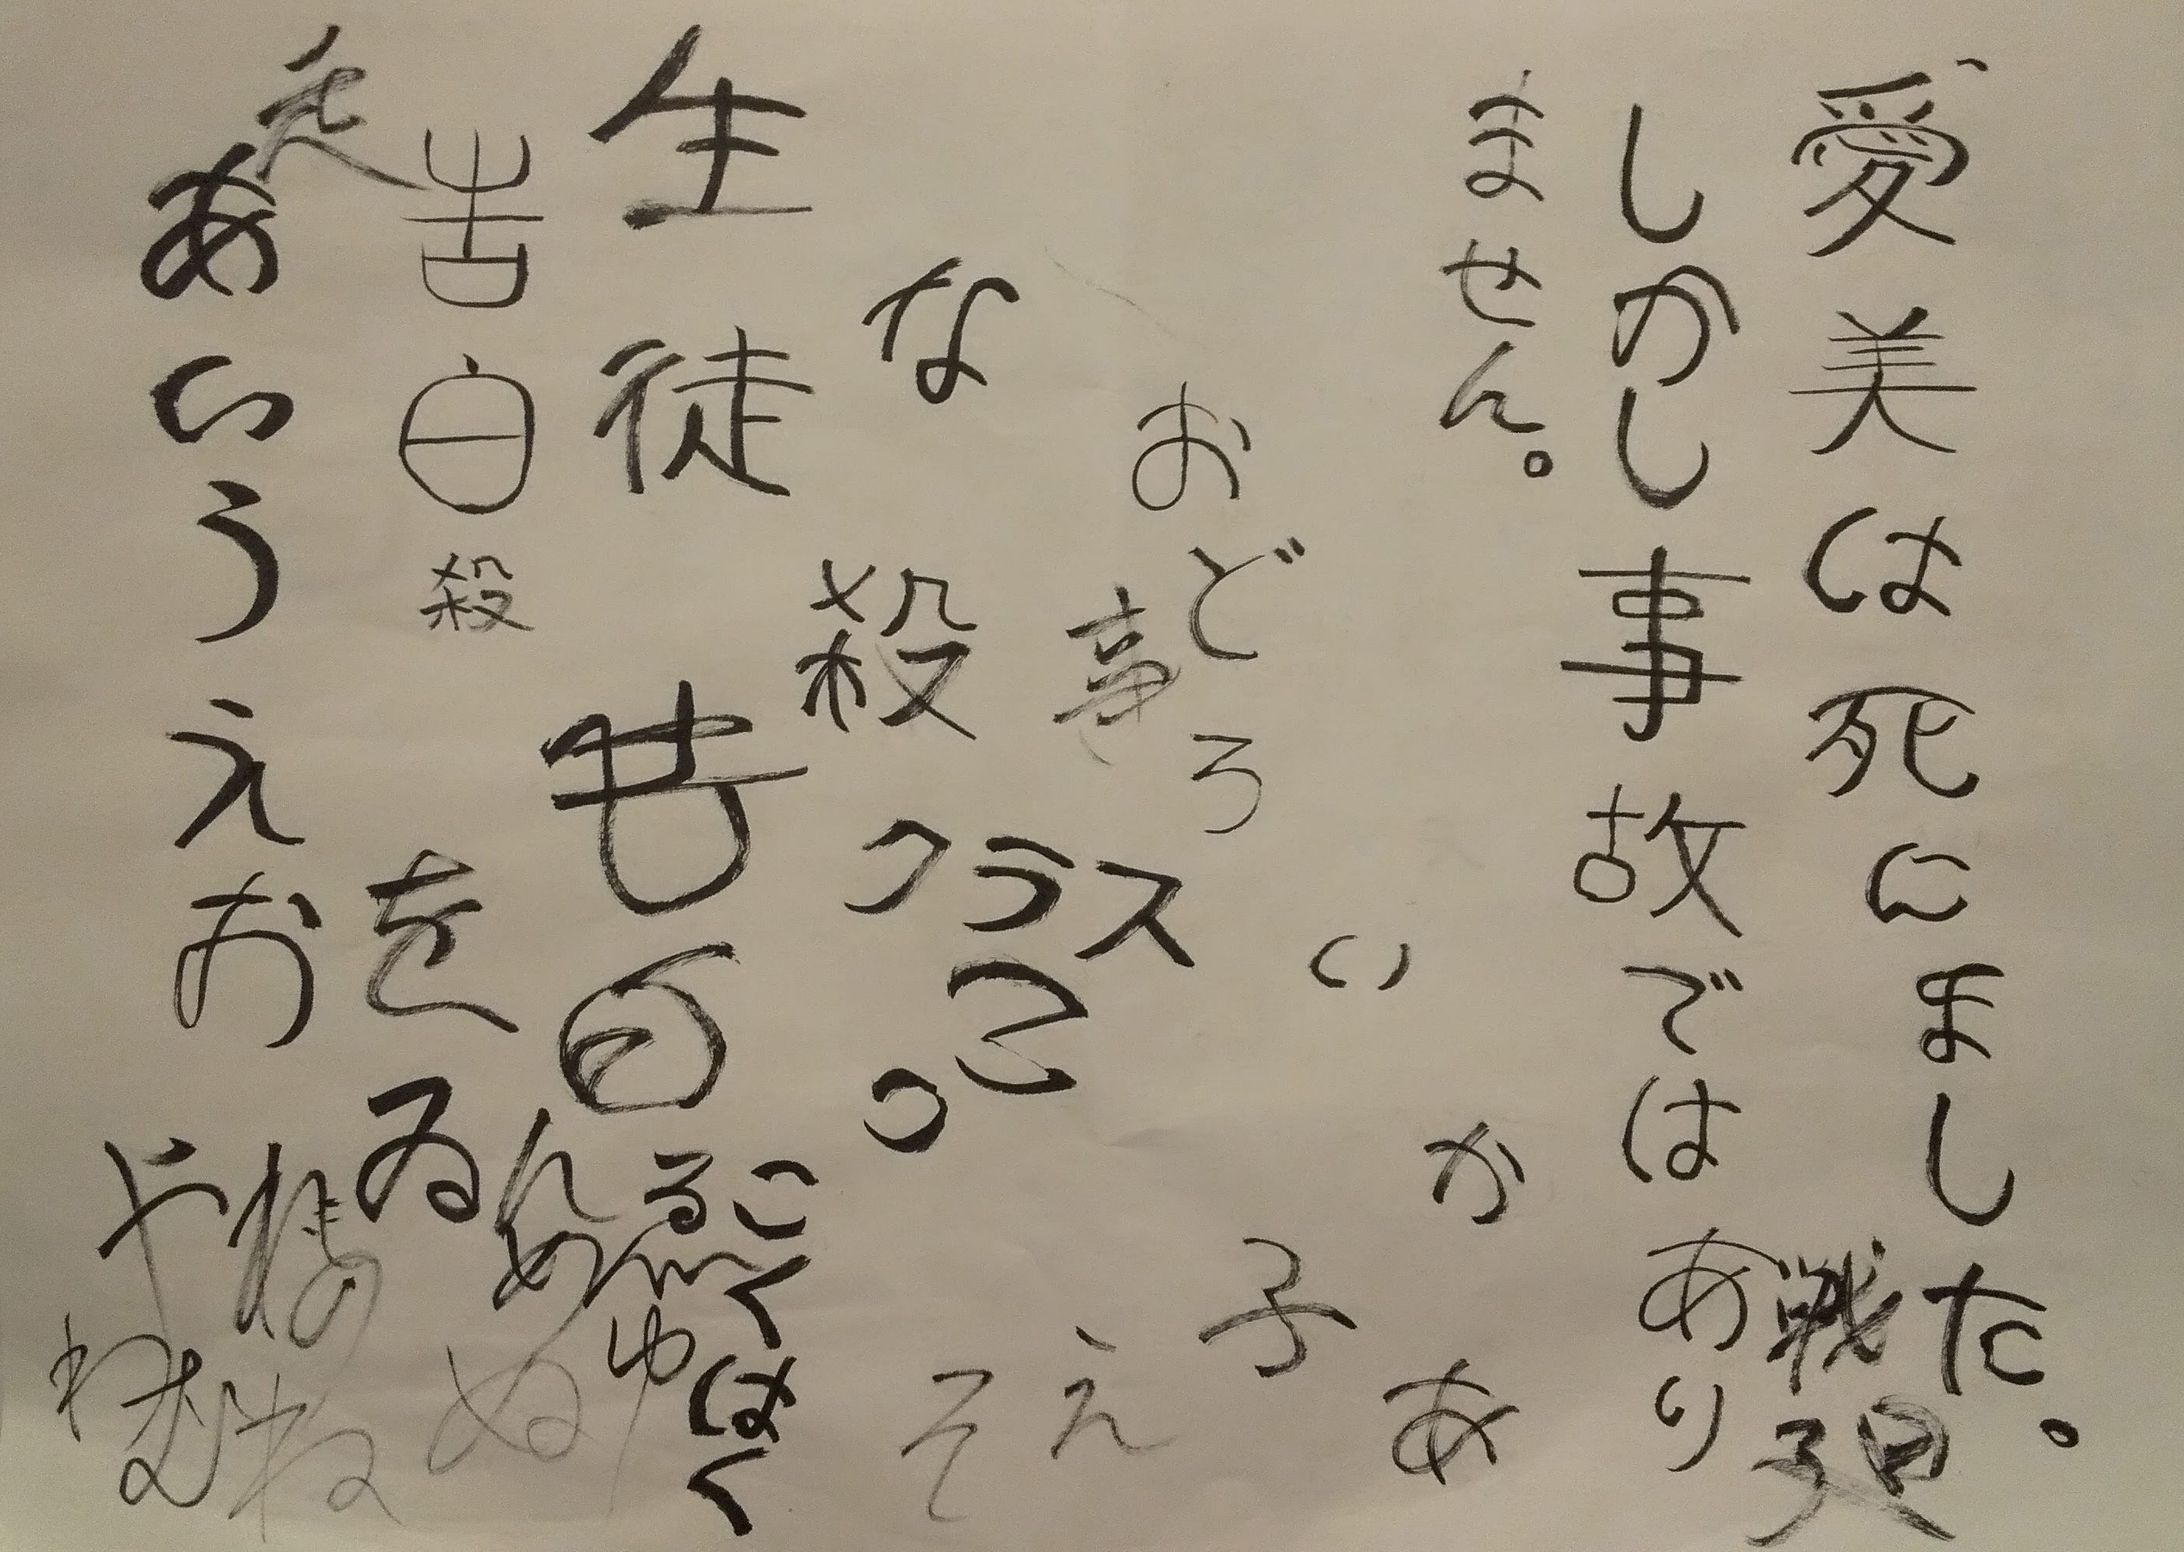 愛美は死にました。
しかし事故ではあり
ません。
戦
おどろいか
あ
子
え
そ
な
殺
クラス
こ
つ
生徒
告白
殺
こくはく
る
ゆ
ん
め
ぬ
を
ゐ
あいうえお
や
ほ
の
れ
む
ね